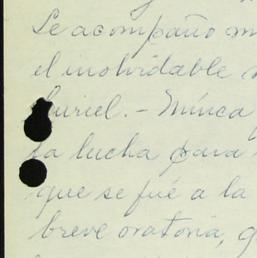 Le acompaño
el inolvidable
Curiel. - Nunca
la lucha para
que se fué a la
breve oratoria,